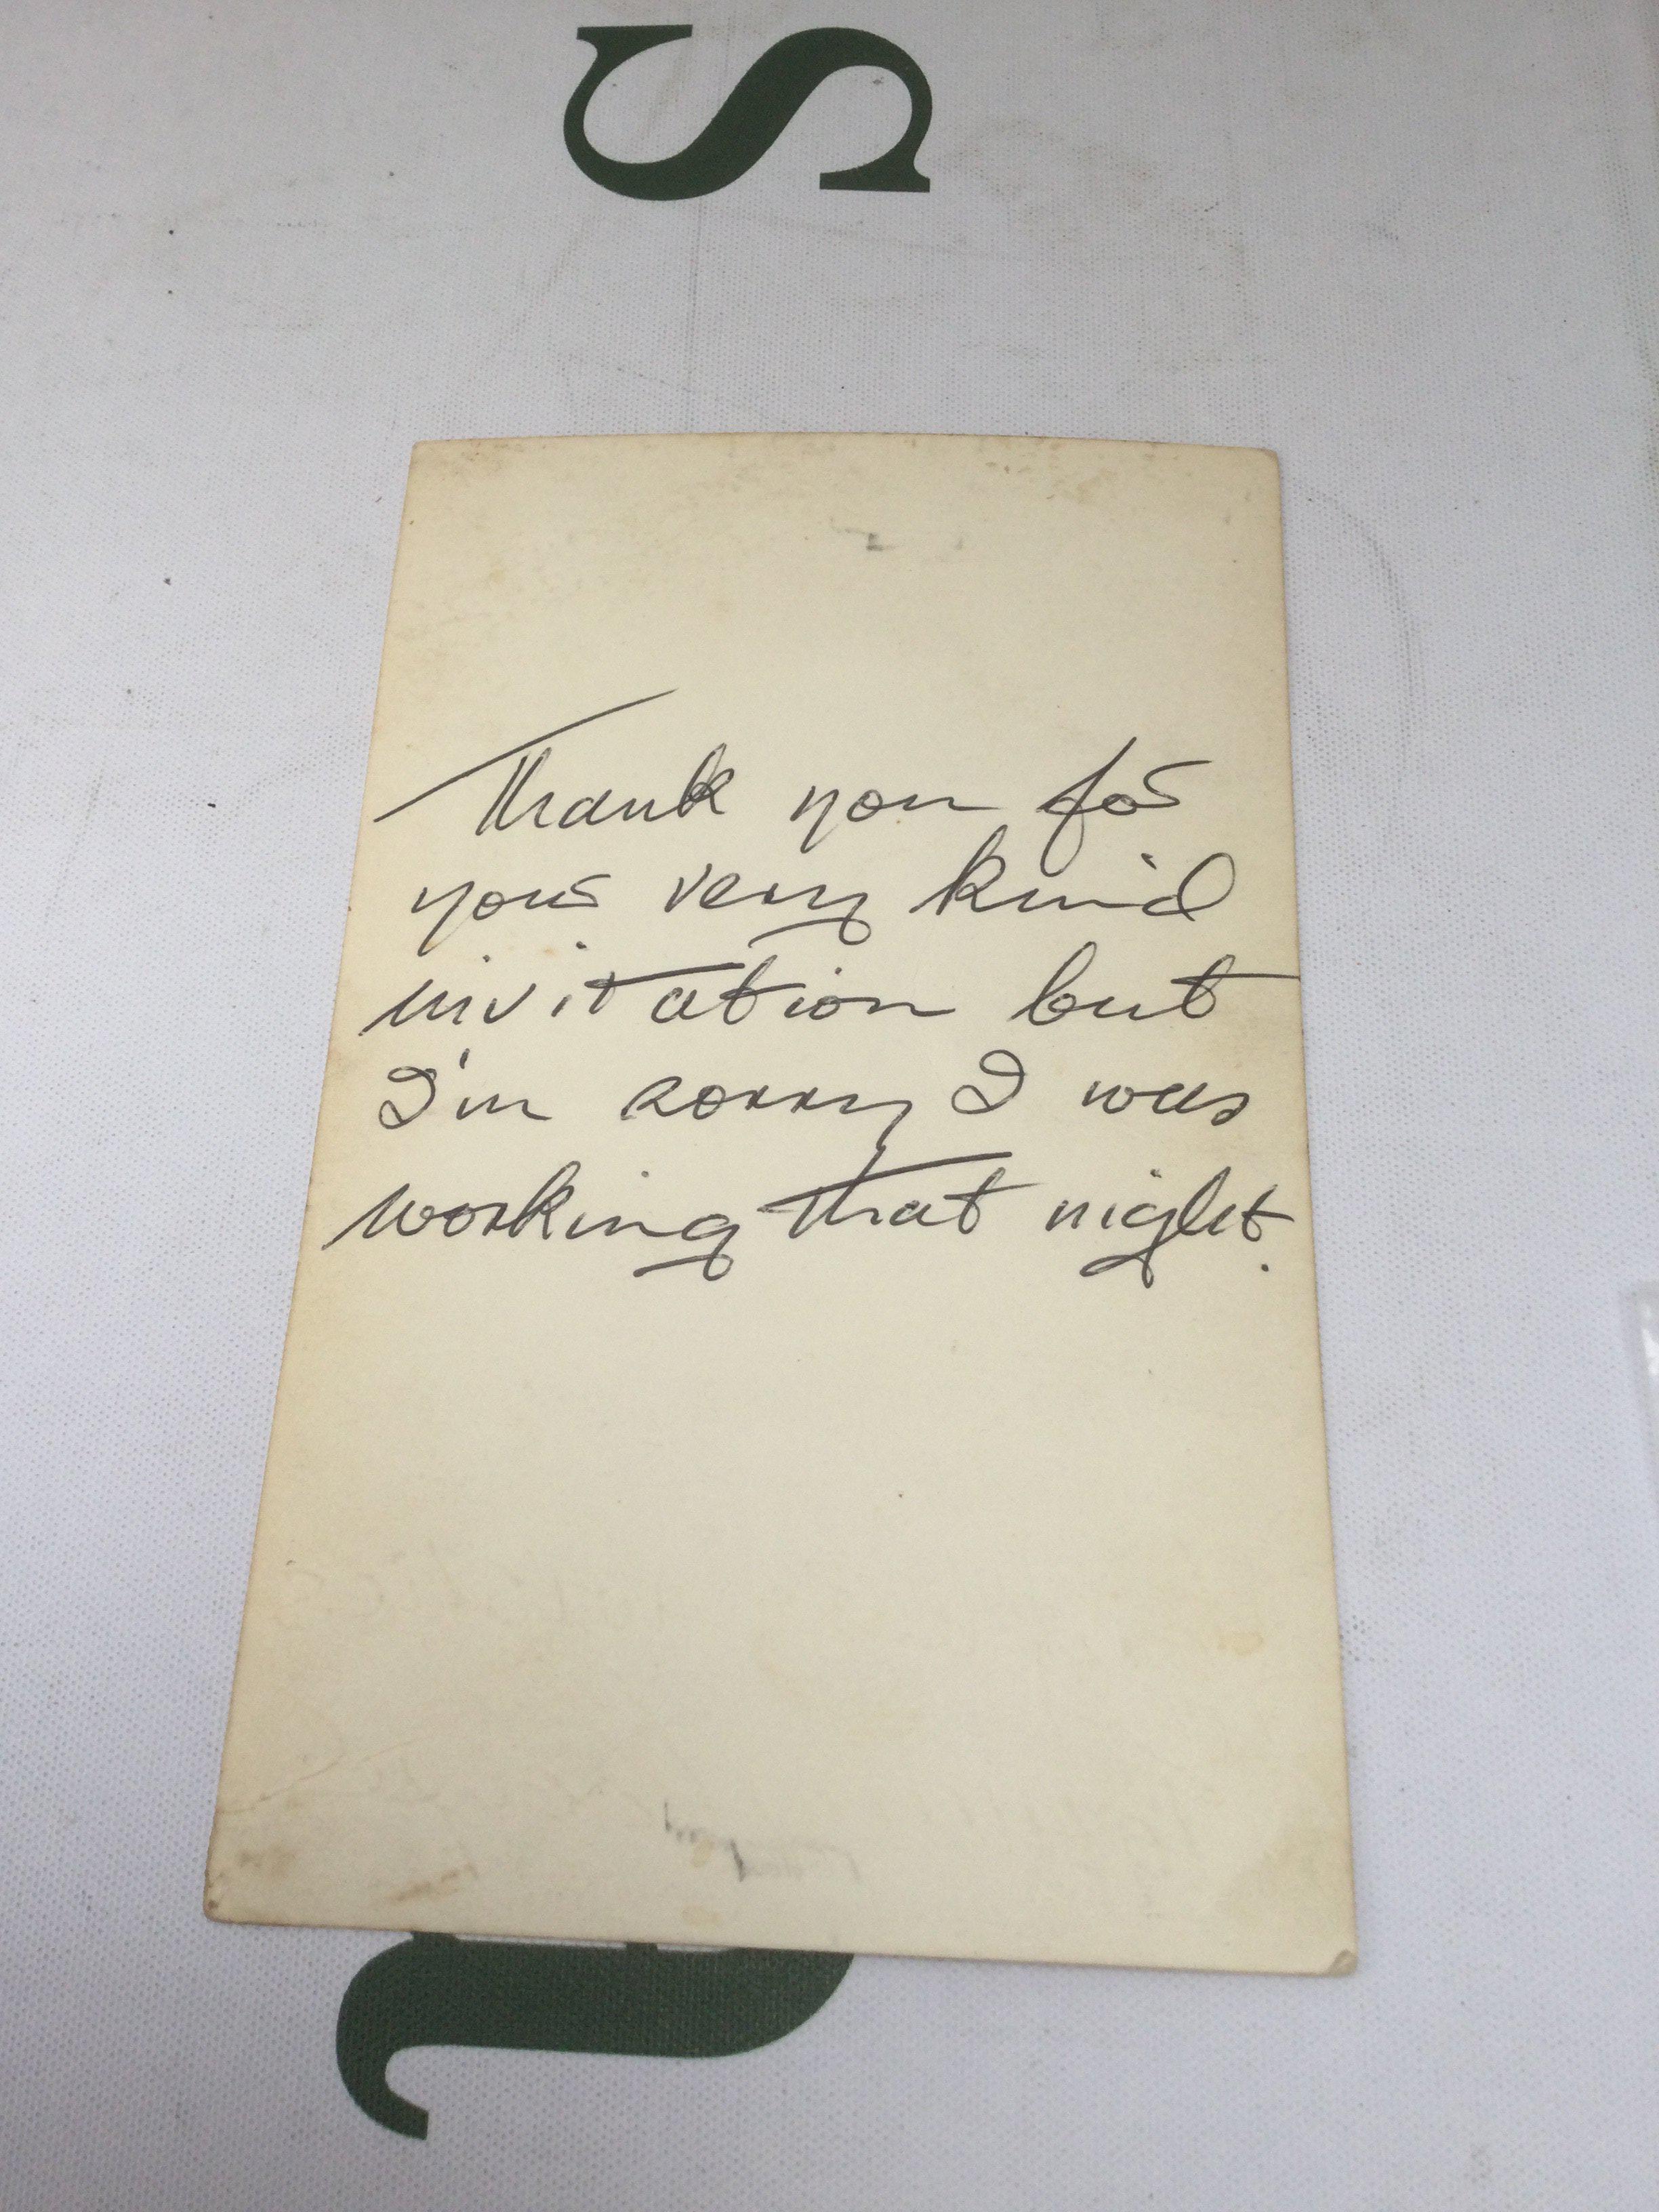 S
Thank you for
your very kind
invitation but
I'm sorry I was
working that night.